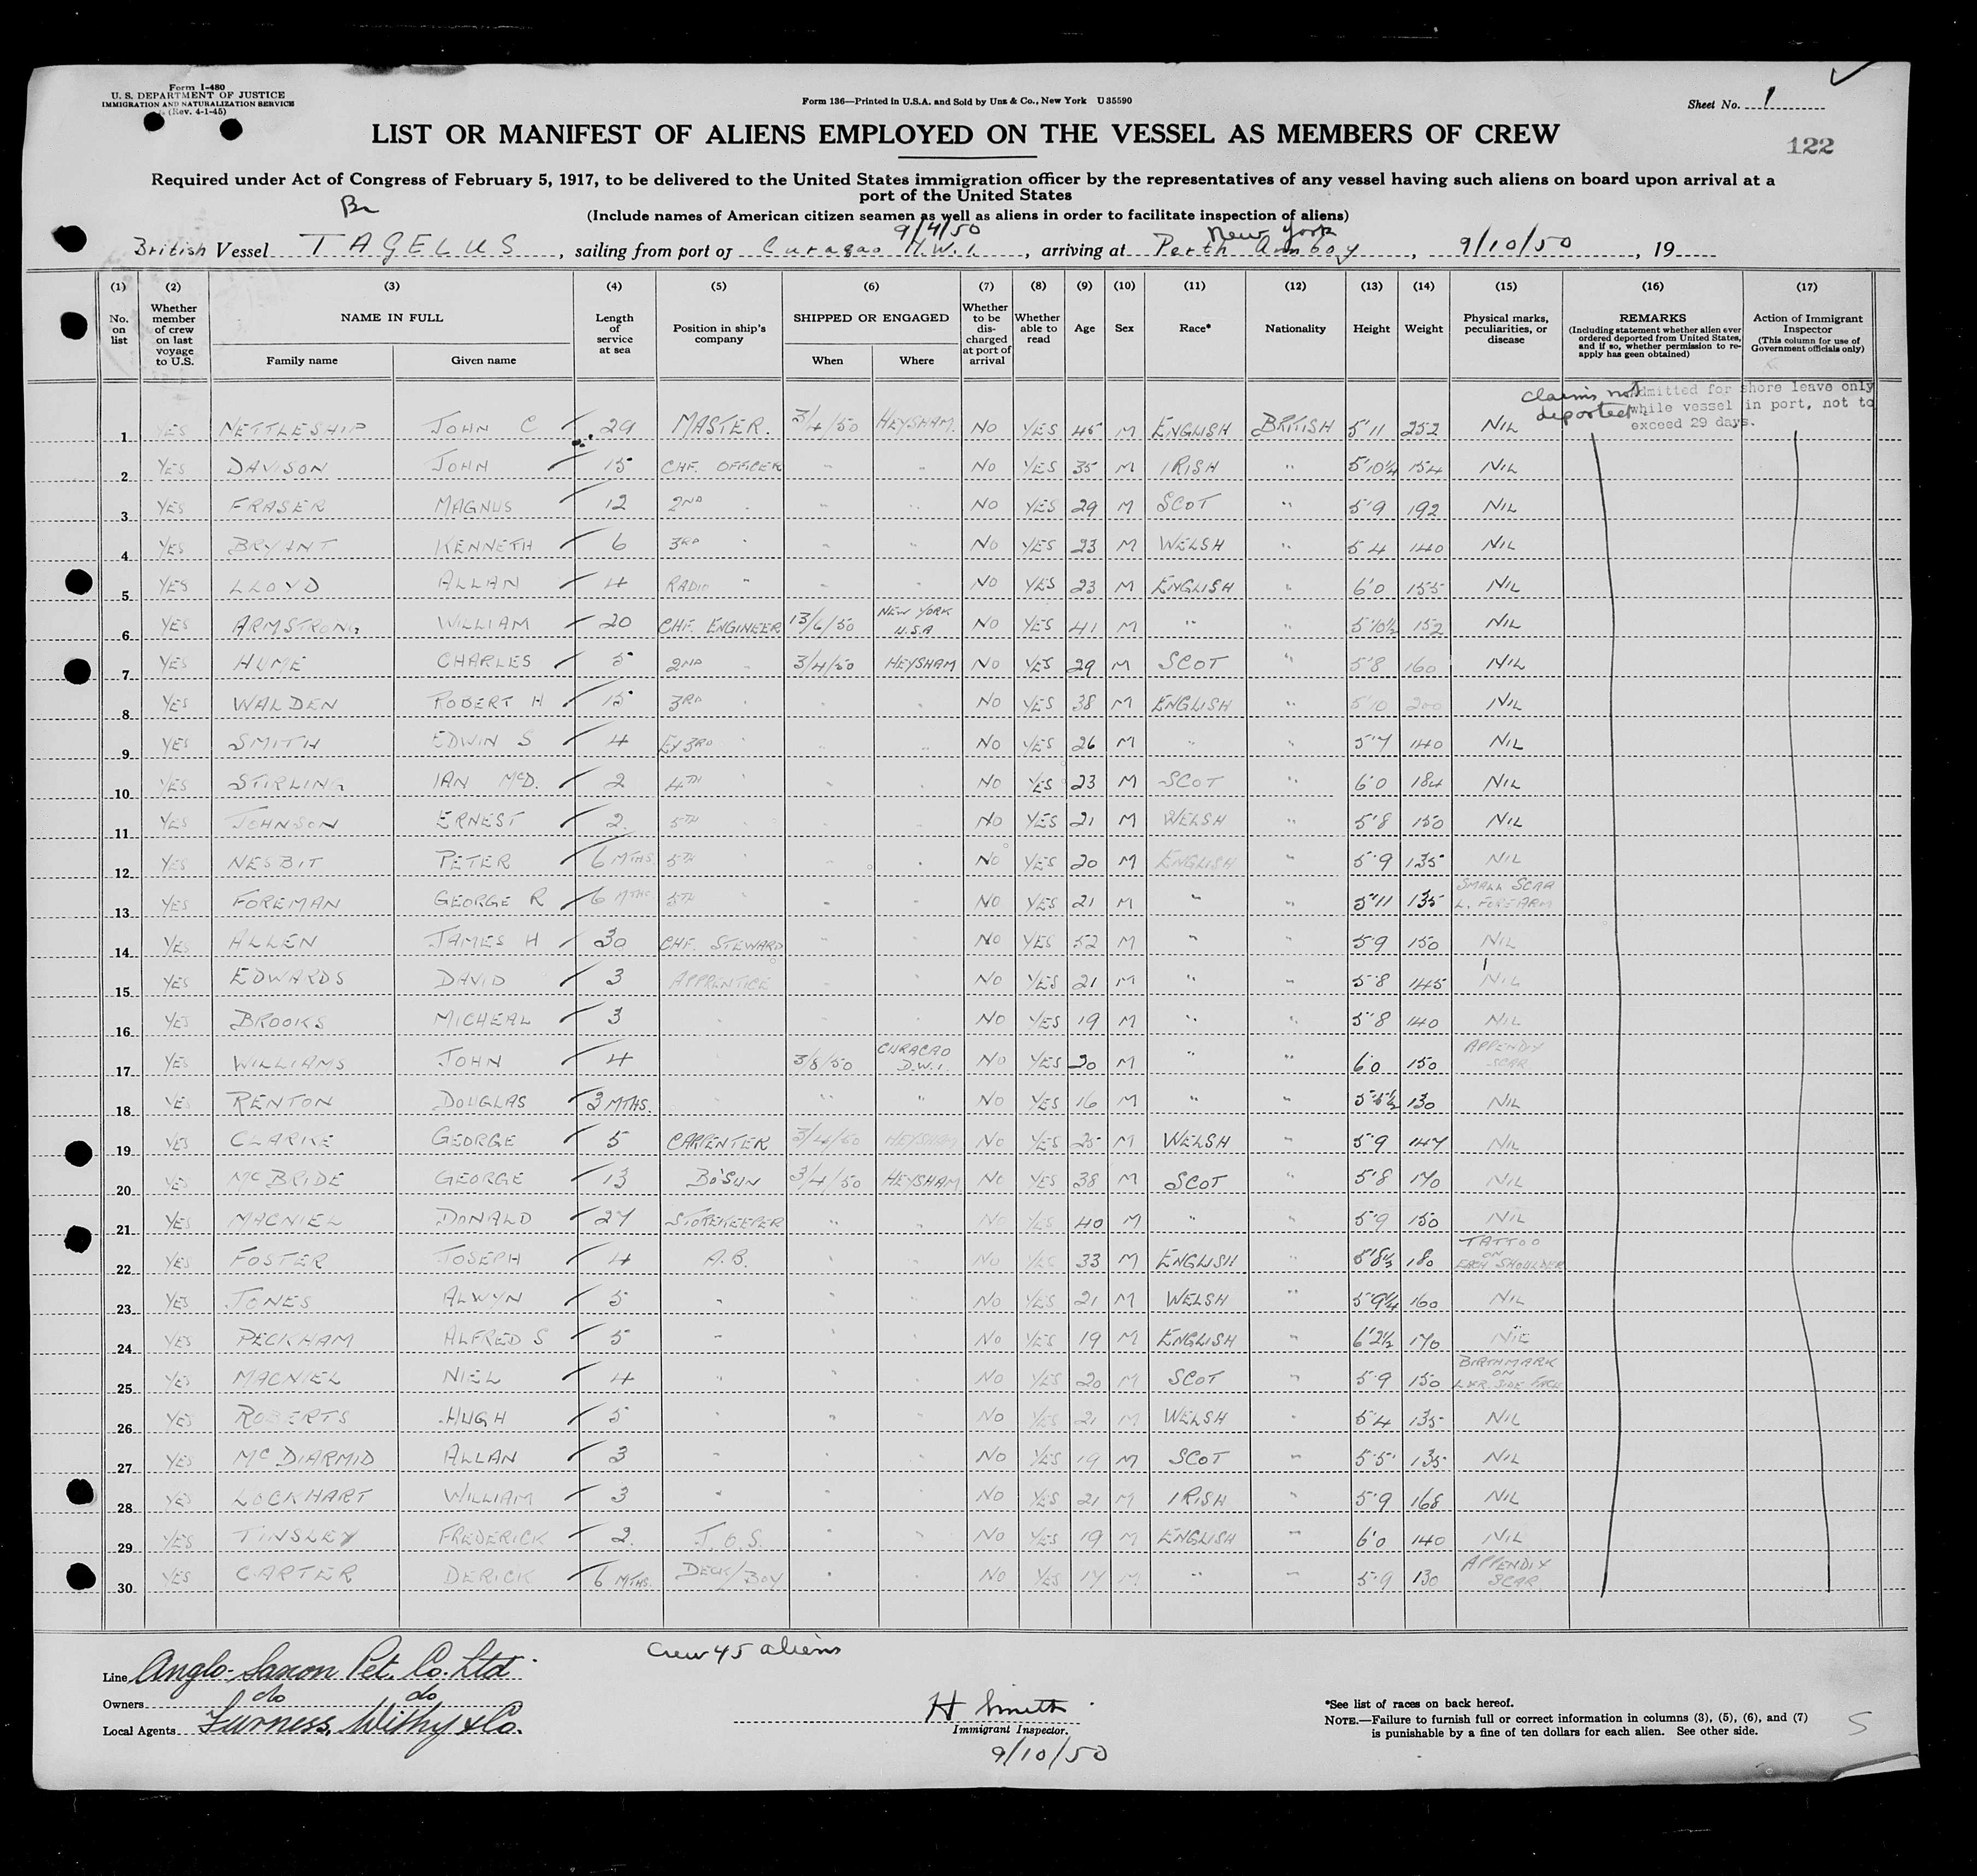 Form I-480
U. S. DEPARTMENT OF JUSTICE
IMMIGRATION AND NATURALIZATION SERVICE
(Rev. 4-1-45)
Form 136—Printed in U.S.A. and Sold by Unz & Co., New York U 35590
Sheet No. 1
LIST OR MANIFEST OF ALIENS EMPLOYED ON THE VESSEL AS MEMBERS OF CREW
122
Required under Act of Congress of February 5, 1917, to be delivered to the United States immigration officer by the representatives of any vessel having such aliens on board upon arrival at a
port of the United States
Br
(Include names of American citizen seamen as well as aliens in order to facilitate inspection of aliens)
9/4/50 New York
British Vessel TAGELUS, sailing from port of Curaçao N.W.I., arriving at Perth Amboy, 9/10/50, 19
(1) (2) (3) (4) (5) (6) (7) (8) (9) (10) (11) (12) (13) (14) (15) (16) (17)
No. on list
Whether member of crew on last voyage to U.S.
NAME IN FULL
Family name
Given name
Length of service at sea
Position in ship's company
SHIPPED OR ENGAGED
When
Where
Whether to be discharged at port of arrival
Whether able to read
Age
Sex
Race*
Nationality
Height
Weight
Physical marks, peculiarities, or disease
REMARKS
(Including statement whether alien ever ordered deported from United States, and if so, whether permission to re-apply has geen obtained)
Action of Immigrant Inspector
(This column for use of Government officials only)
Claims not deported
Admitted for shore leave only
while vessel in port, not to
exceed 29 days.
1 YES NETTLESHIP JOHN C 29 MASTER. 3/4/50 HEYSHAM. NO YES 45 M ENGLISH BRITISH 5'11 252 NIL
2 YES DAVISON JOHN 15 CHF. OFFICER " " NO YES 35 M IRISH " 5'10¼ 154 NIL
3 YES FRASER MAGNUS 12 2ND " " " NO YES 29 M SCOT " 5'9 192 NIL
4 YES BRYANT KENNETH 6 3RD " " " NO YES 23 M WELSH " 5'4 140 NIL
5 YES LLOYD ALLAN 4 RADIO " " " NO YES 23 M ENGLISH " 6'0 155 NIL
6 YES ARMSTRONG WILLIAM 20 CHF. ENGINEER 13/6/50 NEW YORK U.S.A NO YES 41 M " " 5'10½ 152 NIL
7 YES HUME CHARLES 5 2ND " 3/4/50 HEYSHAM NO YES 29 M SCOT " 5'8 160 NIL
8 YES WALDEN ROBERT H 15 3RD " " " NO YES 38 M ENGLISH " 5'10 200 NIL
9 YES SMITH EDWIN S 4 EX 3RD " " " NO YES 26 M " " 5'7 140 NIL
10 YES STIRLING IAN McD. 2 4TH " " " NO YES 23 M SCOT " 6'0 184 NIL
11 YES JOHNSON ERNEST 2 5TH " " " NO YES 21 M WELSH " 5'8 150 NIL
12 YES NESBIT PETER 6 MTHS. 5TH " " " NO YES 20 M ENGLISH " 5'9 135 NIL
13 YES FOREMAN GEORGE R 6 MTHS. 5TH " " " NO YES 21 M " " 5'11 135 SMALL SCAR L. FOREARM
14 YES ALLEN JAMES H 30 CHF. STEWARD " " NO YES 52 M " " 5'9 150 NIL
15 YES EDWARDS DAVID 3 APPRENTICE " " NO YES 21 M " " 5'8 145 NIL
16 YES BROOKS MICHEAL 3 " " " NO YES 19 M " " 5'8 140 NIL
17 YES WILLIAMS JOHN 4 " 3/8/50 CURACAO D.W.I. NO YES 20 M " " 6'0 150 APPENDIX SCAR
18 YES RENTON DOUGLAS 3 MTHS. " " " NO YES 16 M " " 5'5½ 130 NIL
19 YES CLARKE GEORGE 5 CARPENTER 3/4/50 HEYSHAM NO YES 25 M WELSH " 5'9 147 NIL
20 YES McBRIDE GEORGE 13 BO'SUN 3/4/50 HEYSHAM NO YES 38 M SCOT " 5'8 170 NIL
21 YES MACNIEL DONALD 27 STOREKEEPER " " NO YES 40 M " " 5'9 150 NIL
22 YES FOSTER JOSEPH 4 A.B. " " NO YES 33 M ENGLISH " 5'8½ 180 TATTOO ON EACH SHOULDER
23 YES JONES ALWYN 5 " " " NO YES 21 M WELSH " 5'9¼ 160 NIL
24 YES PECKHAM ALFRED S 5 " " " NO YES 19 M ENGLISH " 6'2½ 170 NIL
25 YES MACNIEL NIEL 4 " " " NO YES 20 M SCOT " 5'9 150 BIRTHMARK ON SIDE FACE
26 YES ROBERTS HUGH 5 " " " NO YES 21 M WELSH " 5'4 135 NIL
27 YES McDIARMID ALLAN 3 " " " NO YES 19 M SCOT " 5'5 135 NIL
28 YES LOCKHART WILLIAM 3 " " " NO YES 21 M IRISH " 5'9 168 NIL
29 YES TINSLEY FREDERICK 2 J.O.S. " " NO YES 19 M ENGLISH " 6'0 140 NIL
30 YES CARTER DERICK 6 MTHS. DECK/BOY " " NO YES 17 M " " 5'9 130 APPENDIX SCAR
Crew 45 aliens
Line Anglo-Saxon Pet. Co. Ltd.
Owners do do
Local Agents Furness, Withy & Co.
H Smith
Immigrant Inspector.
9/10/50
*See list of races on back hereof.
NOTE.—Failure to furnish full or correct information in columns (3), (5), (6), and (7)
is punishable by a fine of ten dollars for each alien. See other side.
S